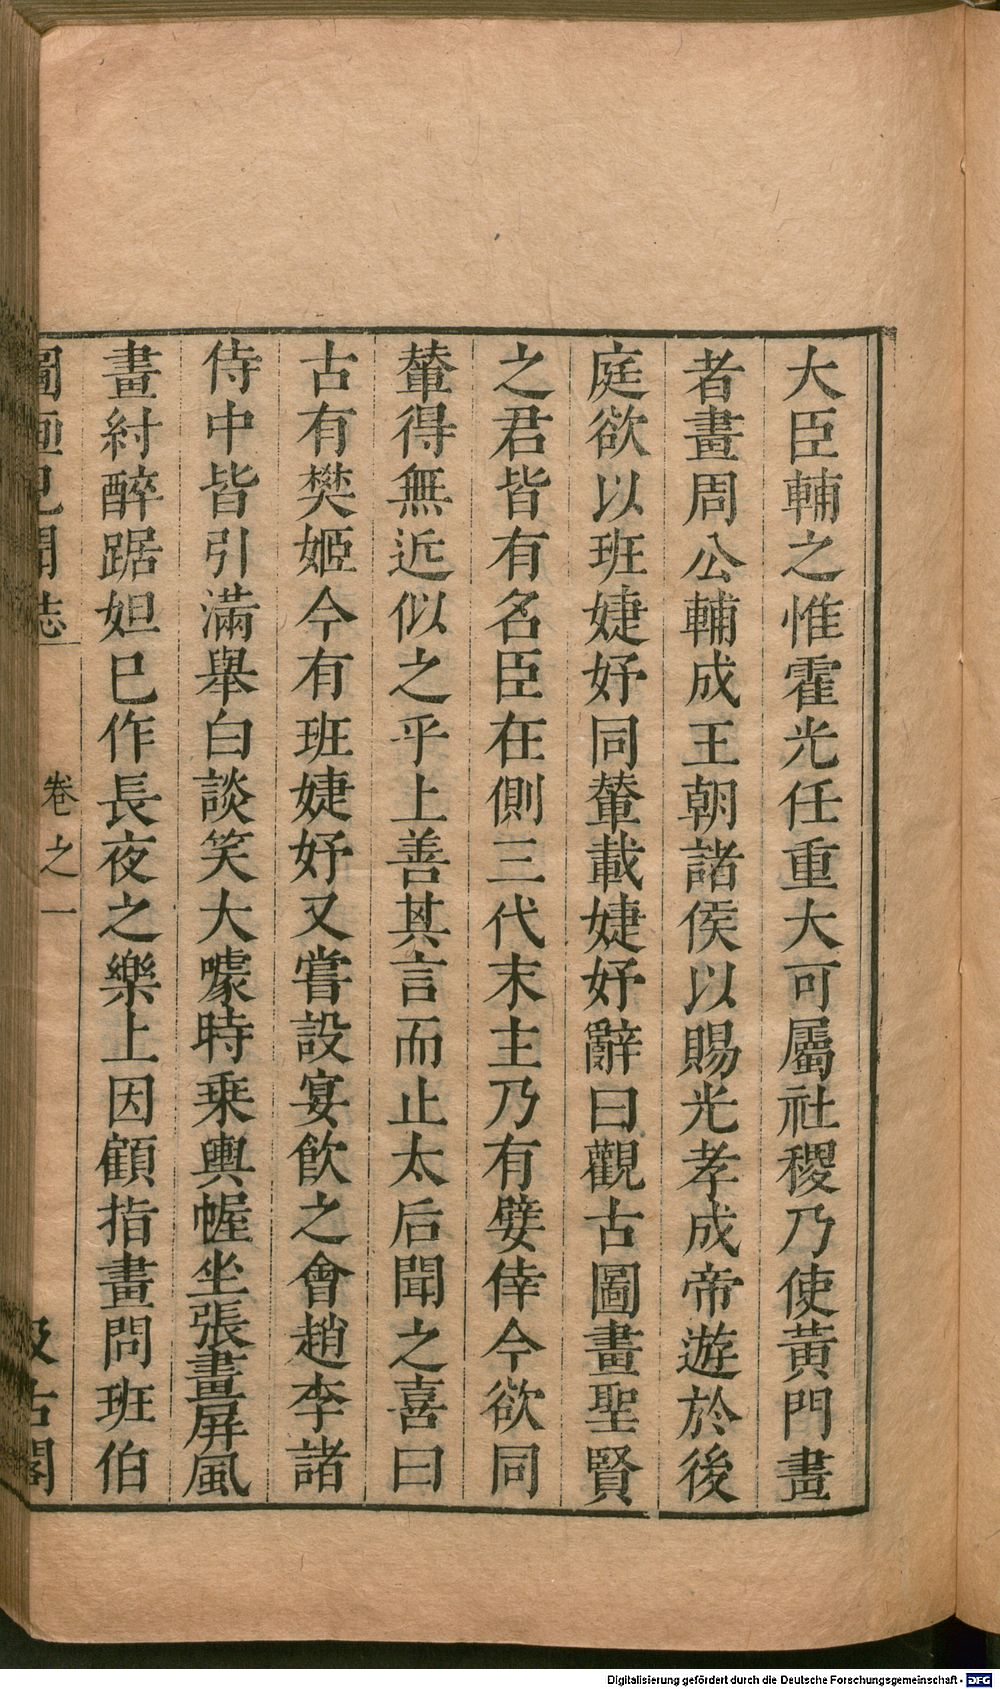 大臣輔之惟霍光任重大可屬社稷乃使黃門畫
者畫周公輔成王朝諸侯以賜光孝成帝遊於後
庭欲以班婕妤同輦載婕妤辭曰觀古圖畫聖賢
之君皆有名臣在側三代末主乃有嬖倖今欲同
輦得無近似之乎上善其言而止太后聞之喜曰
古有樊姬今有班婕妤又嘗設宴飲之會趙李諸
侍中皆引滿舉白談笑大噱時乗輿幄坐張畫屏風
畫紂醉踞妲巳作長夜之樂上因顧指畫問班伯
圖画見聞誌 卷之一 汲古閣
Digitalisierung gefördert durch die Deutsche Forschungsgemeinschaft - DFG